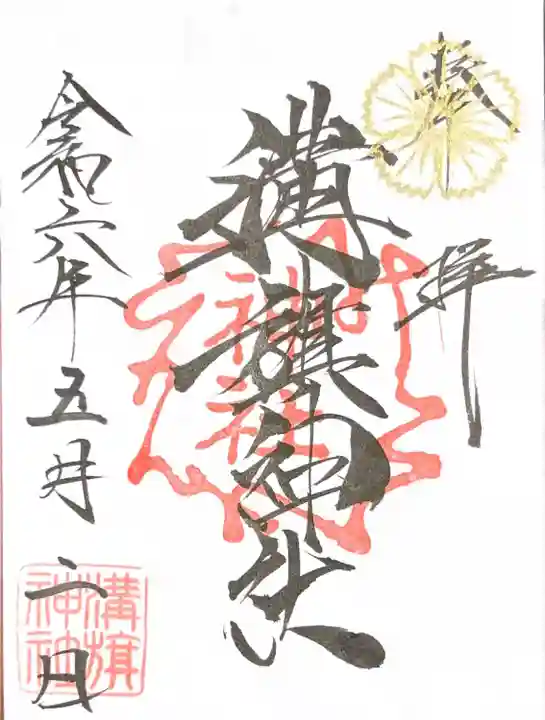 奉
拝
溝旗神社
令和六年五月二日
溝旗
神社